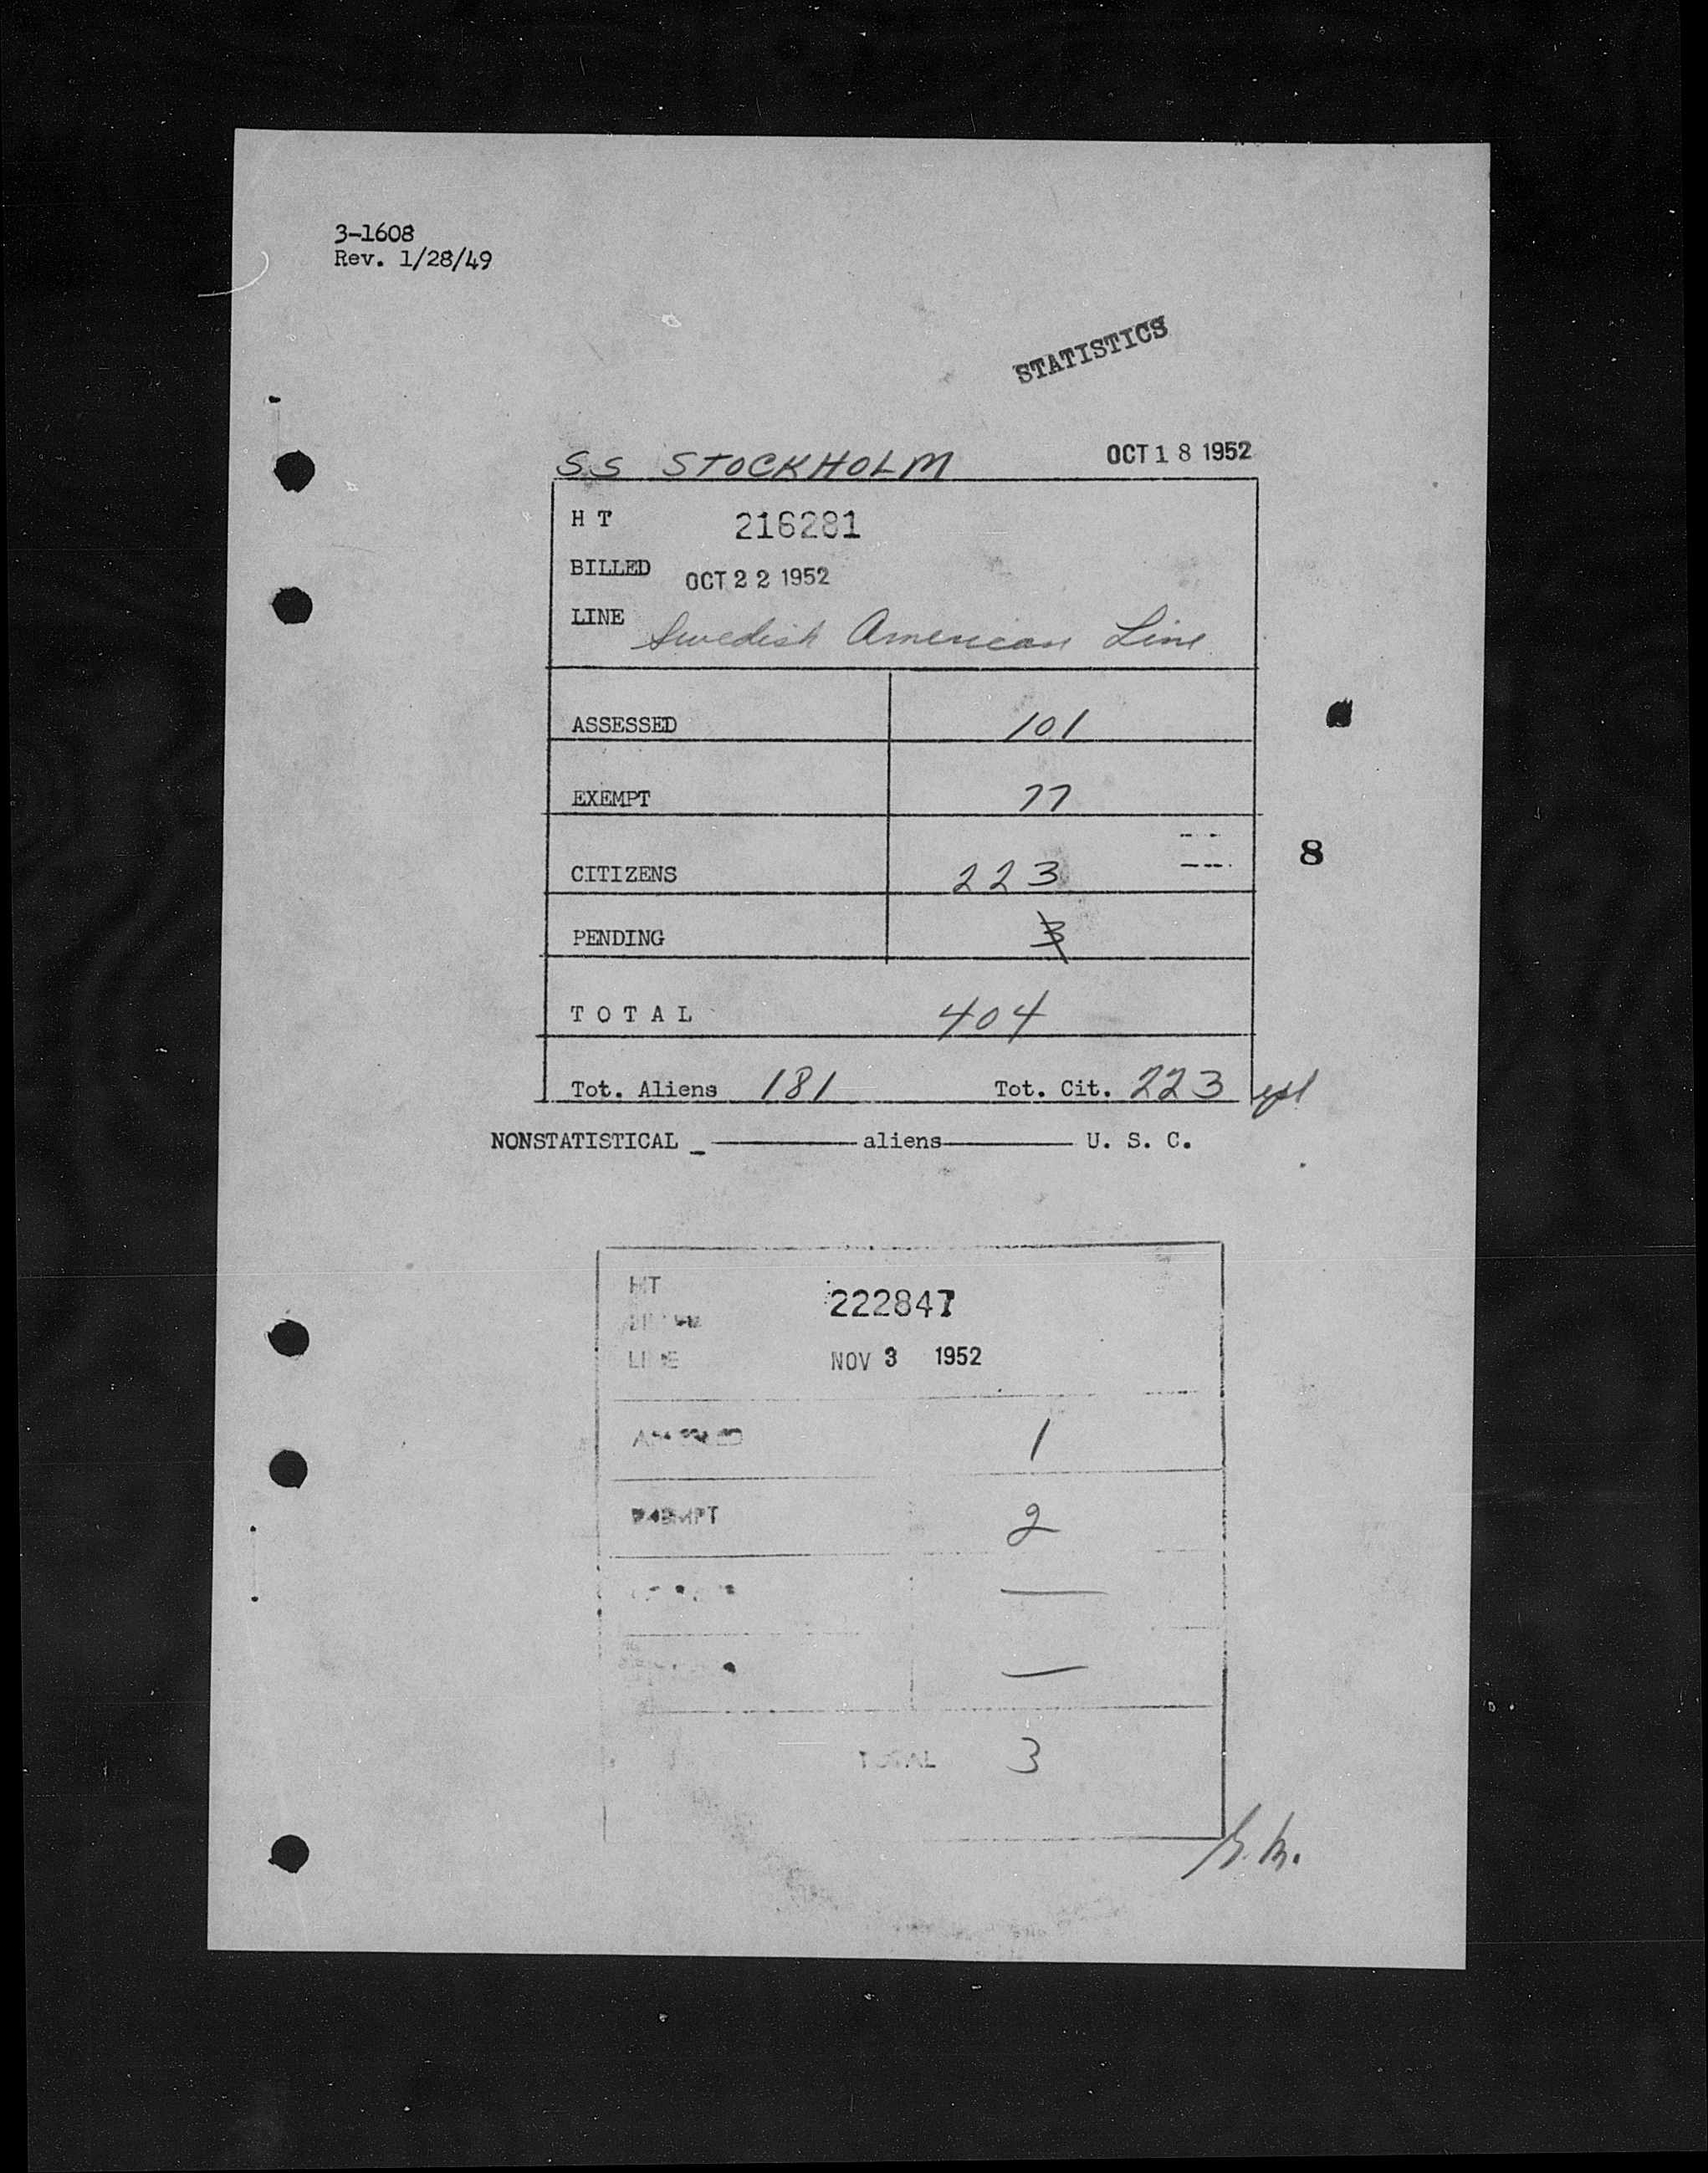 3-1608
Rev. 1/28/49
STATISTICS
SS STOCKHOLM OCT 18 1952
H T 216281
BILLED OCT 22 1952
LINE Swedish American Line
ASSESSED 101
EXEMPT 77
8
CITIZENS 223
PENDING 3
T O T A L 404
Tot. Aliens 181 Tot. Cit. 223
NONSTATISTICAL _ aliens U. S. C.
HT 222847
LINE NOV 3 1952
ASSESSED 1
EXEMPT 2
—
—
TOTAL 3